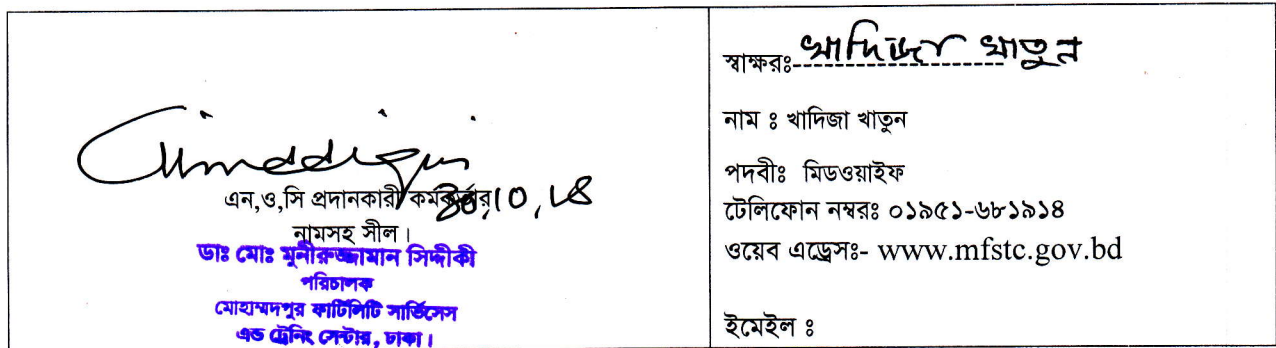 এন,ও,সি প্রদানকারী কর্মকর্তার
30,10,18
নামসহ সীল।
ডাঃ মোঃ মুনীরুজ্জামান সিদ্দীকী
পরিচালক
মোহাম্মদপুর ফার্টিলিটি সার্ভিসেস
এন্ড ট্রেনিং সেন্টার, ঢাকা।
স্বাক্ষরঃ খাদিজা খাতুন
নাম ঃ খাদিজা খাতুন
পদবীঃ মিডওয়াইফ
টেলিফোন নম্বরঃ ০১৯৫১-৬৮১৯১৪
ওয়েব এড্রেসঃ- www.mfstc.gov.bd
ইমেইল ঃ